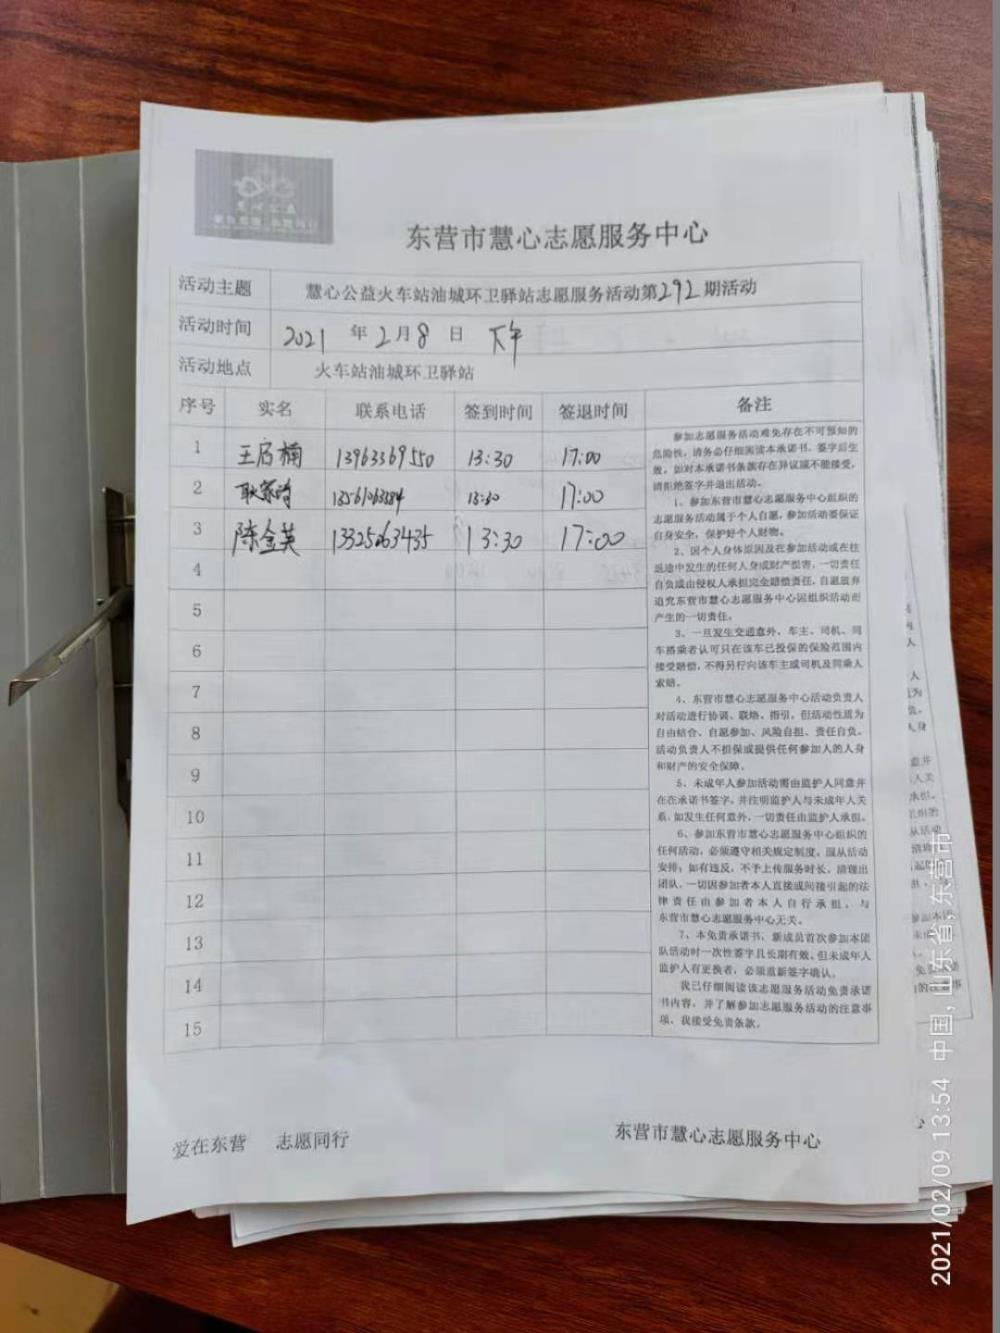 东营市慧心志愿服务中心
活动主题 慧心公益火车站油城环卫驿站志愿服务活动第292期活动
活动时间 2021年2月8日 下午
活动地点 火车站油城环卫驿站
序号 实名 联系电话 签到时间 签退时间 备注
1 王启楠 13963369550 13:30 17:00
2 13:30 17:00
3 陈金英 13325063435 13:30 17:00
4
5
6
7
8
9
10
11
12
13
14
15
参加志愿服务活动难免存在不可预知的
危险性，请务必仔细阅读本承诺书，签字后生
效。如对本承诺书条款存在异议或不能接受，
请拒绝签字并退出活动。
1、参加东营市慧心志愿服务中心组织的
志愿服务活动属于个人自愿，参加活动要保证
自身安全，保护好个人财物。
2、因个人身体原因及在参加活动或在往
返途中发生的任何人身或财产损害，一切责任
自负或由侵权人承担完全赔偿责任，自愿放弃
追究东营市慧心志愿服务中心因组织活动而
产生的一切责任。
3、一旦发生交通意外，车主、司机、同
车搭乘者认可只在该车已投保的保险范围内
接受赔偿，不得另行向该车主或司机及同乘人
索赔。
4、东营市慧心志愿服务中心活动负责人
对活动进行协调、联络、指引，但活动性质为
自由结合、自愿参加、风险自担、责任自负。
活动负责人不担保或提供任何参加人的人身
和财产的安全保障。
5、未成年人参加活动需由监护人同意并
在在承诺书签字，并注明监护人与未成年人关
系，如发生任何意外，一切责任由监护人承担。
6、参加东营市慧心志愿服务中心组织的
任何活动，必须遵守相关规定制度，服从活动
安排；如有违反，不予上传服务时长，清理出
团队，一切因参加者本人直接或间接引起的法
律责任由参加者本人自行承担，与
东营市慧心志愿服务中心无关。
7、本免责承诺书，新成员首次参加本团
队活动时一次性签字且长期有效。但未成年人
监护人有更换者，必须重新签字确认。
我已仔细阅读该志愿服务活动免责承诺
书内容，并了解参加志愿服务活动的注意事
项，我接受免责条款。
爱在东营 志愿同行 东营市慧心志愿服务中心
2021/02/09 13:54 中国，山东省，东营市